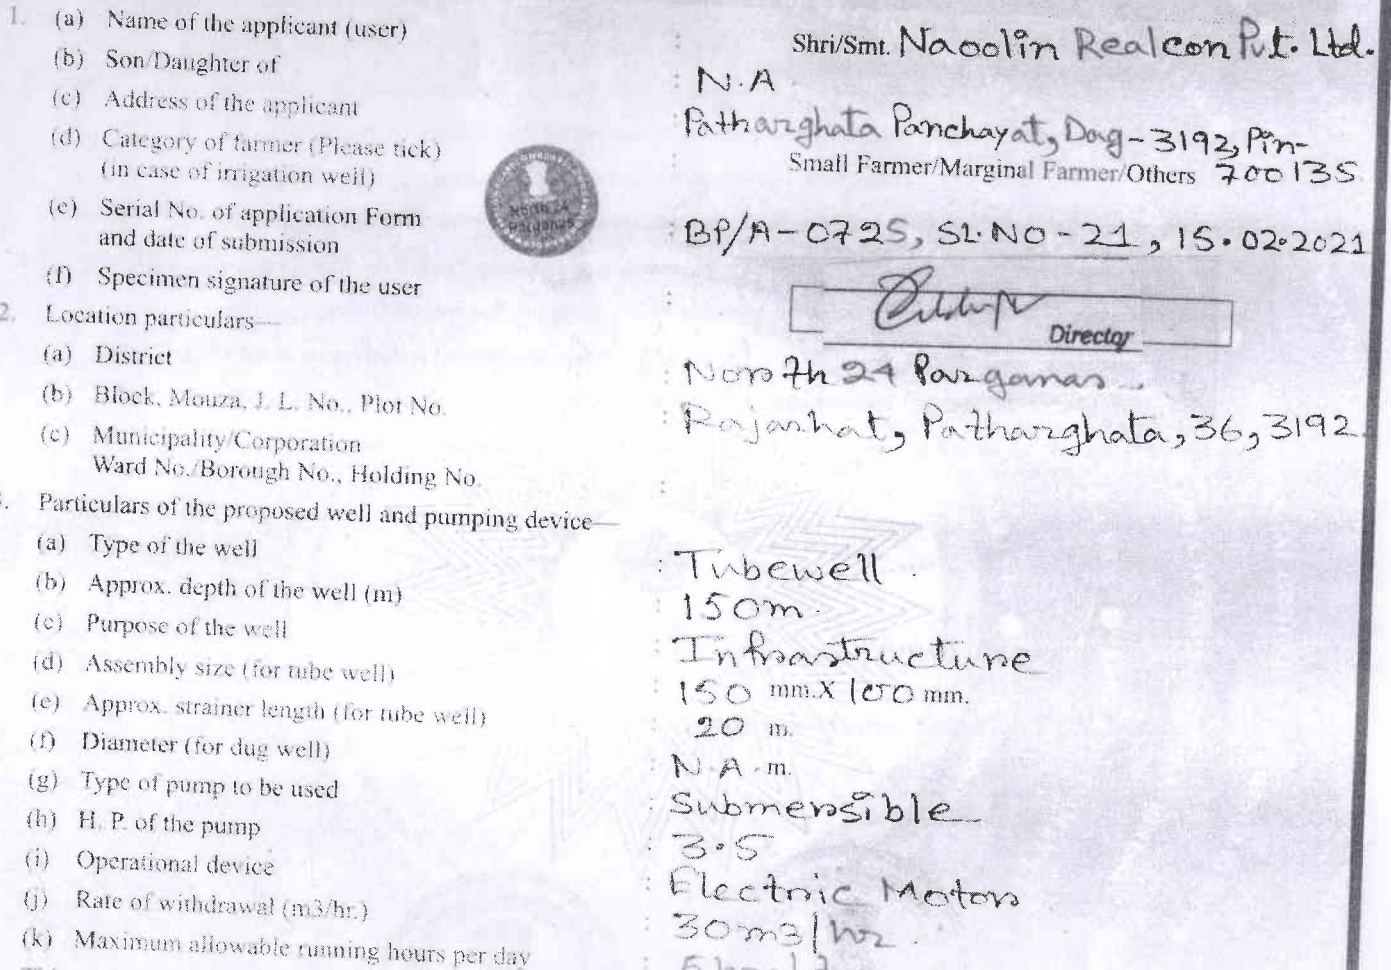 1. (a) Name of the applicant (user) : Shri/Smt. Naoolin Realcon Pvt. Ltd.
(b) Son/Daughter of : N.A
(c) Address of the applicant : Patharghata Panchayat, Dag-3192, Pin-
(d) Category of farmer (Please tick) : Small Farmer/Marginal Farmer/Others 700135
(in case of irrigation well)
North 24
Parganas
(e) Serial No. of application Form : BP/A-0725, SL.NO-21, 15.02.2021
and date of submission
(f) Specimen signature of the user :
Director
2. Location particulars—
(a) District : North 24 Parganas
(b) Block, Mouza, J. L. No., Plot No. : Rajarhat, Patharghata, 36, 3192
(c) Municipality/Corporation :
Ward No./Borough No., Holding No.
Particulars of the proposed well and pumping device—
(a) Type of the well : Tubewell
(b) Approx. depth of the well (m) : 150m.
(c) Purpose of the well : Infrastructure
(d) Assembly size (for tube well) : 150 mm.X 100 mm.
(e) Approx. strainer length (for tube well) : 20 m.
(f) Diameter (for dug well) : N.A. m.
(g) Type of pump to be used : Submersible
(h) H. P. of the pump : 3.5
(i) Operational device : Electric Motor
(j) Rate of withdrawal (m3/hr.) : 30m3/hr.
(k) Maximum allowable running hours per day :